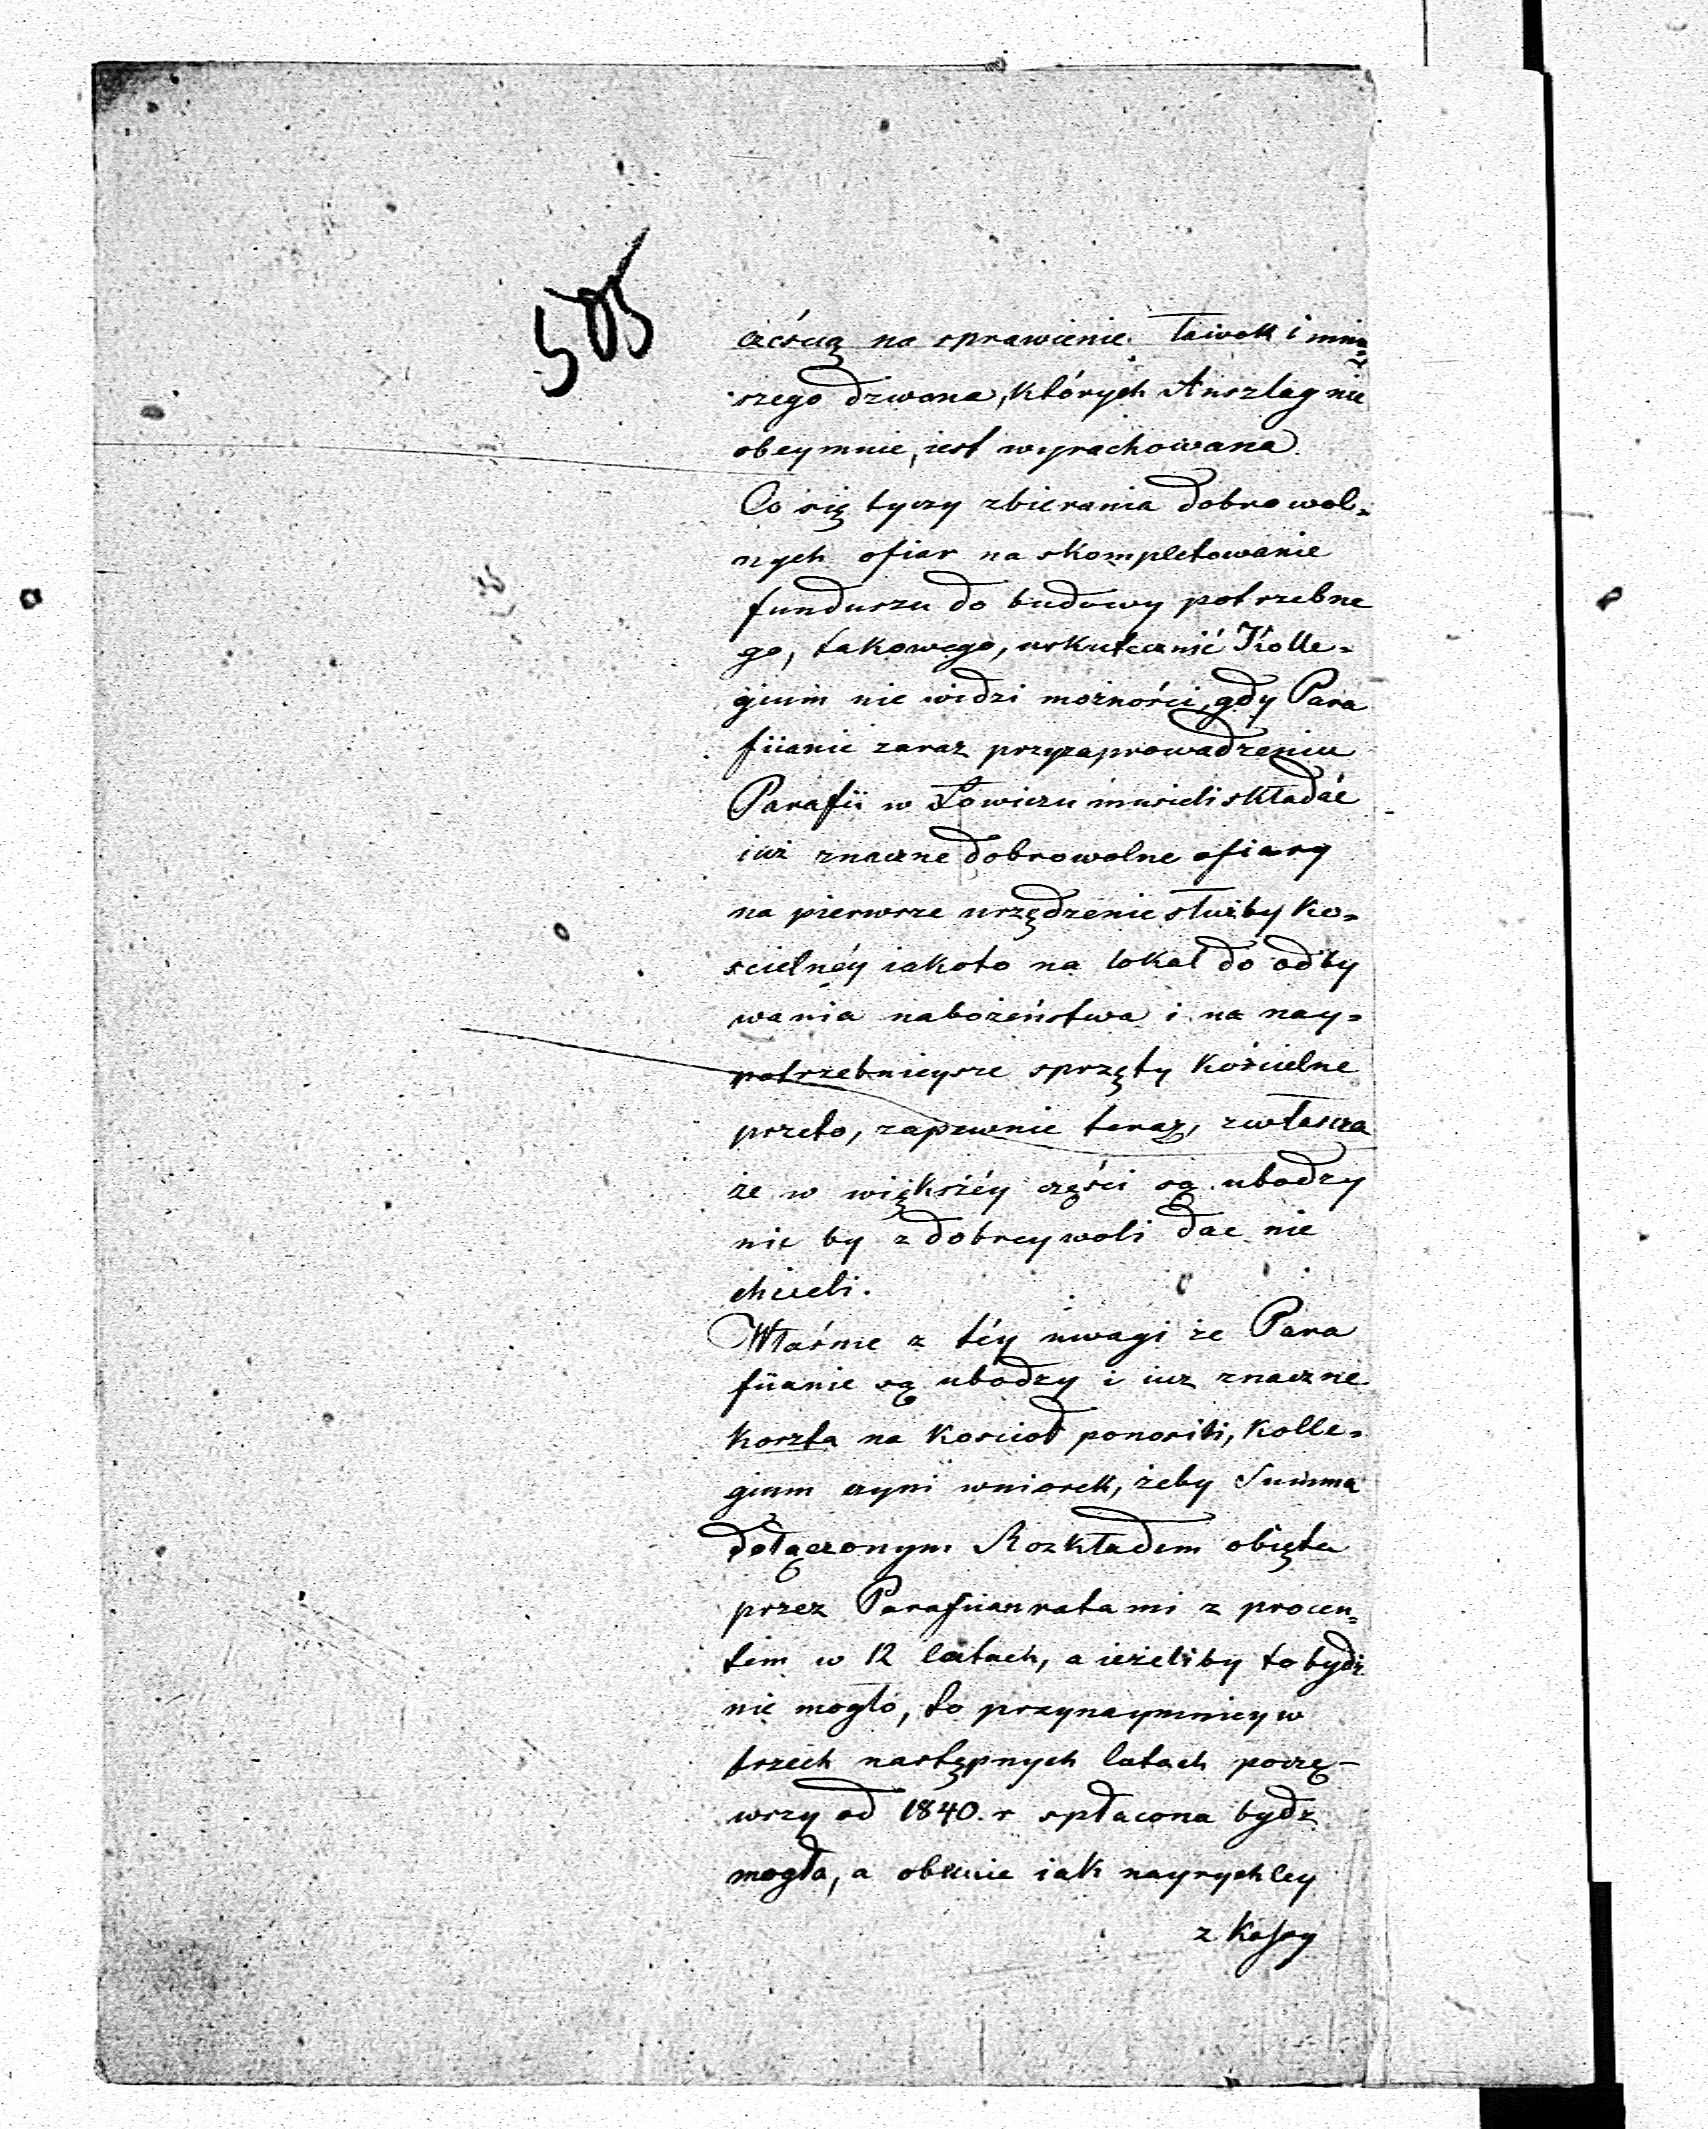 505
cześcią na sprawienie ławek i mniey=
szego dzwona, których Anszlag nie
obeymuie, iest wyrachowana.
Co się tyczy zbierania dobrowol=
nych ofiar na skompletowanie
funduszu do budowy potrzebne
go, takowego, uskutecznić Kolle=
gium nie widzi możności, gdy Para
fiianie zaraz przyzaprowadzeniu
Parafii w Łowiczu musieli składać
iuż znaczne dobrowolne ofiary
na pierwsze urzędzenie służby Ko=
scielnéy iakoto na lokal do odby
wania nabożeństwa i na nay=
potrzebnieysze sprzęty kościelne
przeto, zapewnie teraz, zwłascza
że w większéy części są ubodzy
nic by z dobreywoli dac nie
chcieli.
Właśnie z téy uwagi że Para
fiianie są ubodzy i iuz znaczne
koszta na kościoł ponosili, Kolle=
gium czyni wniosek, żeby Summa
dołączonym Rozkładem obięta
przez Parafiian ratami z procen=
tem w 12 latach, a ieżeliby to bydź
nie mogło, to przynaymniey w
trzech następnych latach począ-
wszy od 1840. r spłacona bydz
mogła, a obecnie iak nayrychley
z Kassy